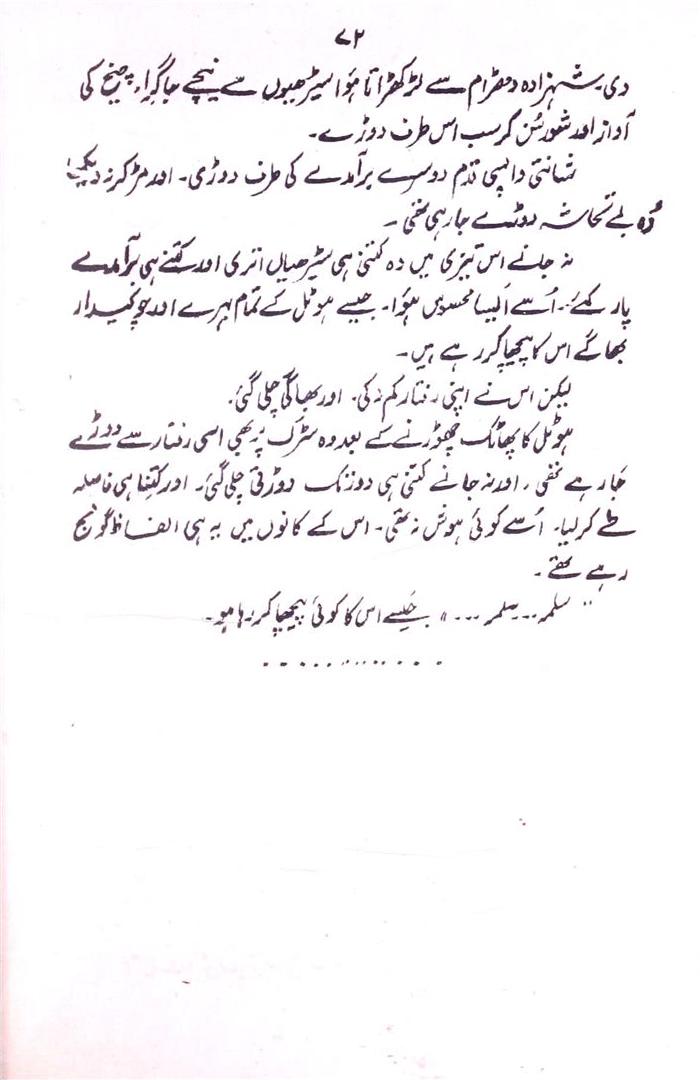 ۷۲
دی۔ شہزادہ دھڑام سے لڑکھڑاتا ہؤا سیڑھیوں سے نیچے جاگرا، چیخ کی
آواز اور شور سُن کر سب اس طرف دوڑے۔
شانتی واپسی قدم دوسرے برآمدے کی طرف دوڑی۔ اور مڑکر نہ دیکھا
وُہ بے تحاشہ دوڑے جارہی تھی۔
نہ جانے اس تیزی میں وہ کتنی ہی سیڑھیاں اتری اور کتنے ہی برآمدے
پار کئے۔ اُسے اَیسا محسوس ہؤا۔ جیسے ہوٹل کے تمام بہرے اور چوکیدار
بھاگے اس کا پیچھا کررہے ہیں۔
لیکن اس نے اپنی رفتار کم نہ کی۔ اور بھاگی چلی گئی۔
ہوٹل کا پھاٹک چھوڑنے کے بعد وہ سڑک پر بھی اسی رفتار سے دوڑے
جارہے تھی، اور نہ جانے کتنی ہی دور تک دوڑتی چلی گئی۔ اور کتنا ہی فاصلہ
طے کرلیا۔ اُسے کوئی ہوش نہ تھی۔ اس کے کانوں میں یہ ہی الفاظ گونج
رہے تھے۔
"سلمہ۔۔۔سلمہ۔۔۔" جیسے اس کا کوئی پیچھا کررہا ہو۔
۔۔۔۔۔۔۔۔۔۔۔۔